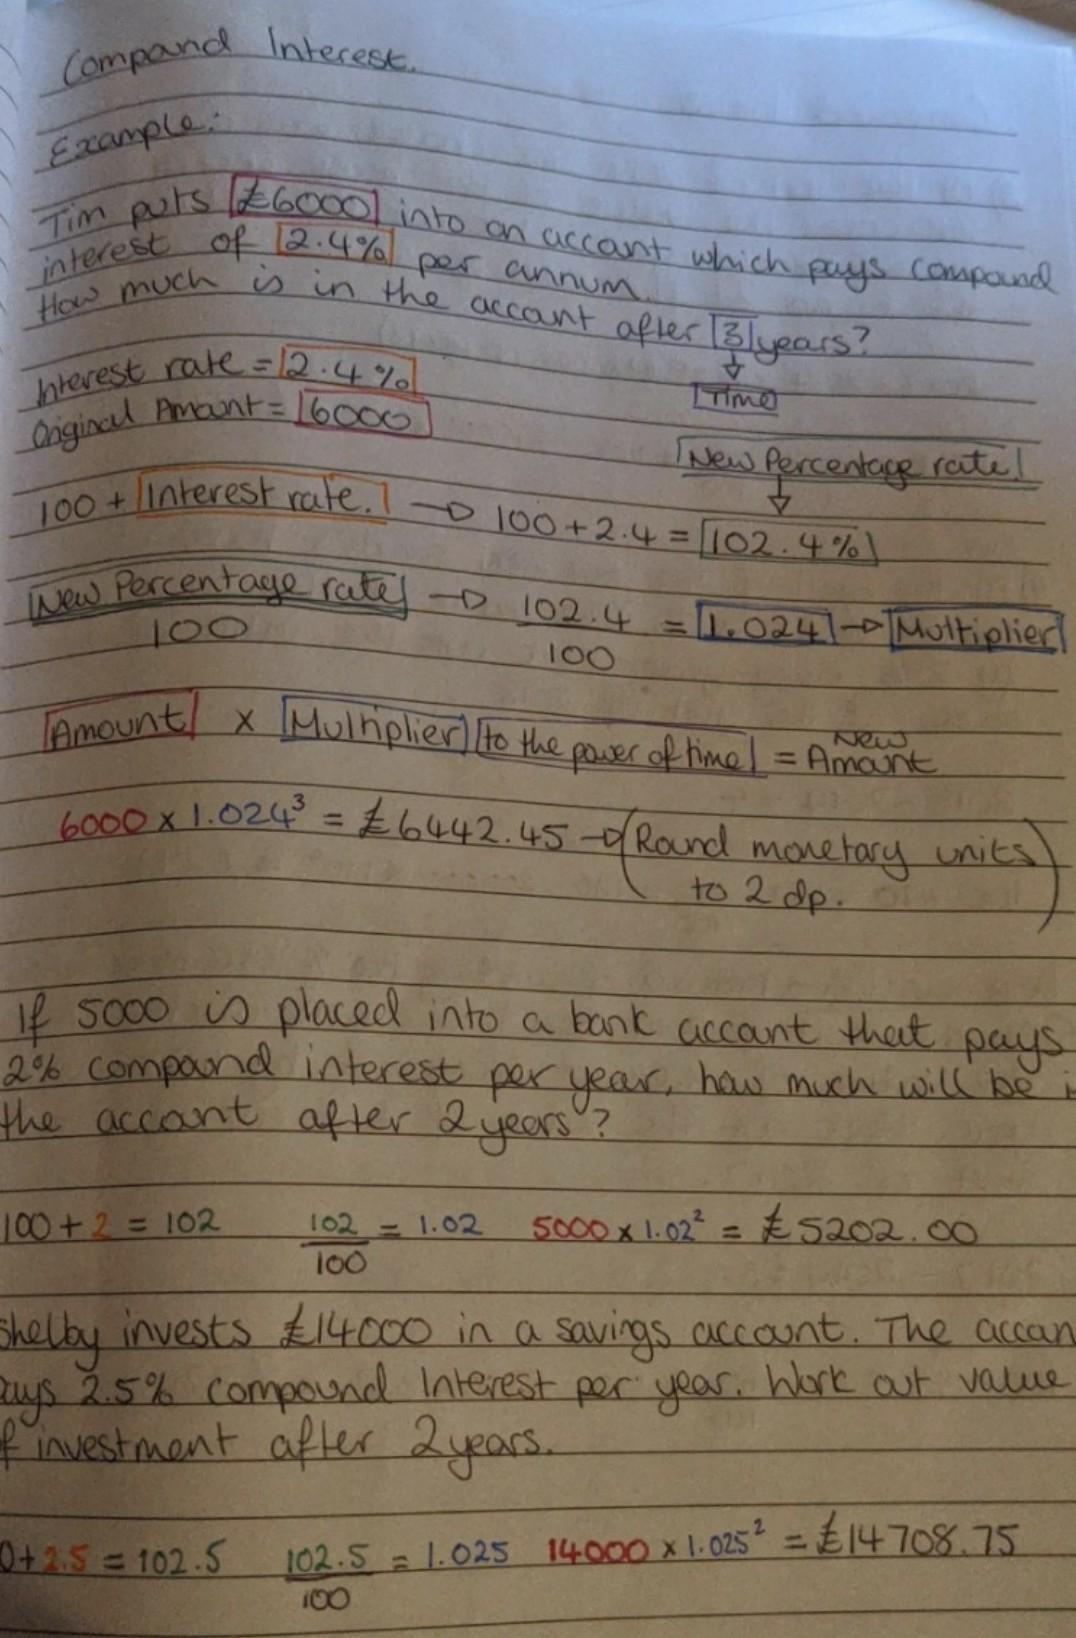 Compound Interest.
Example:
Tim puts £6000 into an account which pays compound
interest of 2.4% per annum.
How much is in the account after 3 years?
Time
Interest rate = 2.4%
Original Amount = 6000
New Percentage rate
100 + Interest rate. → 100 + 2.4 = 102.4%
New Percentage rate → 102.4 = 1.024 → Multiplier
100 100
Amount x Multiplier to the power of time = New Amount
6000 x 1.024³ = £6442.45 → (Round monetary units
to 2 dp.)
If 5000 is placed into a bank account that pays
2% compound interest per year, how much will be i
the account after 2 years?
100 + 2 = 102 102/100 = 1.02 5000 x 1.02² = £5202.00
Shelby invests £14000 in a savings account. The accoun
ays 2.5% compound Interest per year. Work out value
f investment after 2 years.
0 + 2.5 = 102.5 102.5/100 = 1.025 14000 x 1.025² = £14708.75